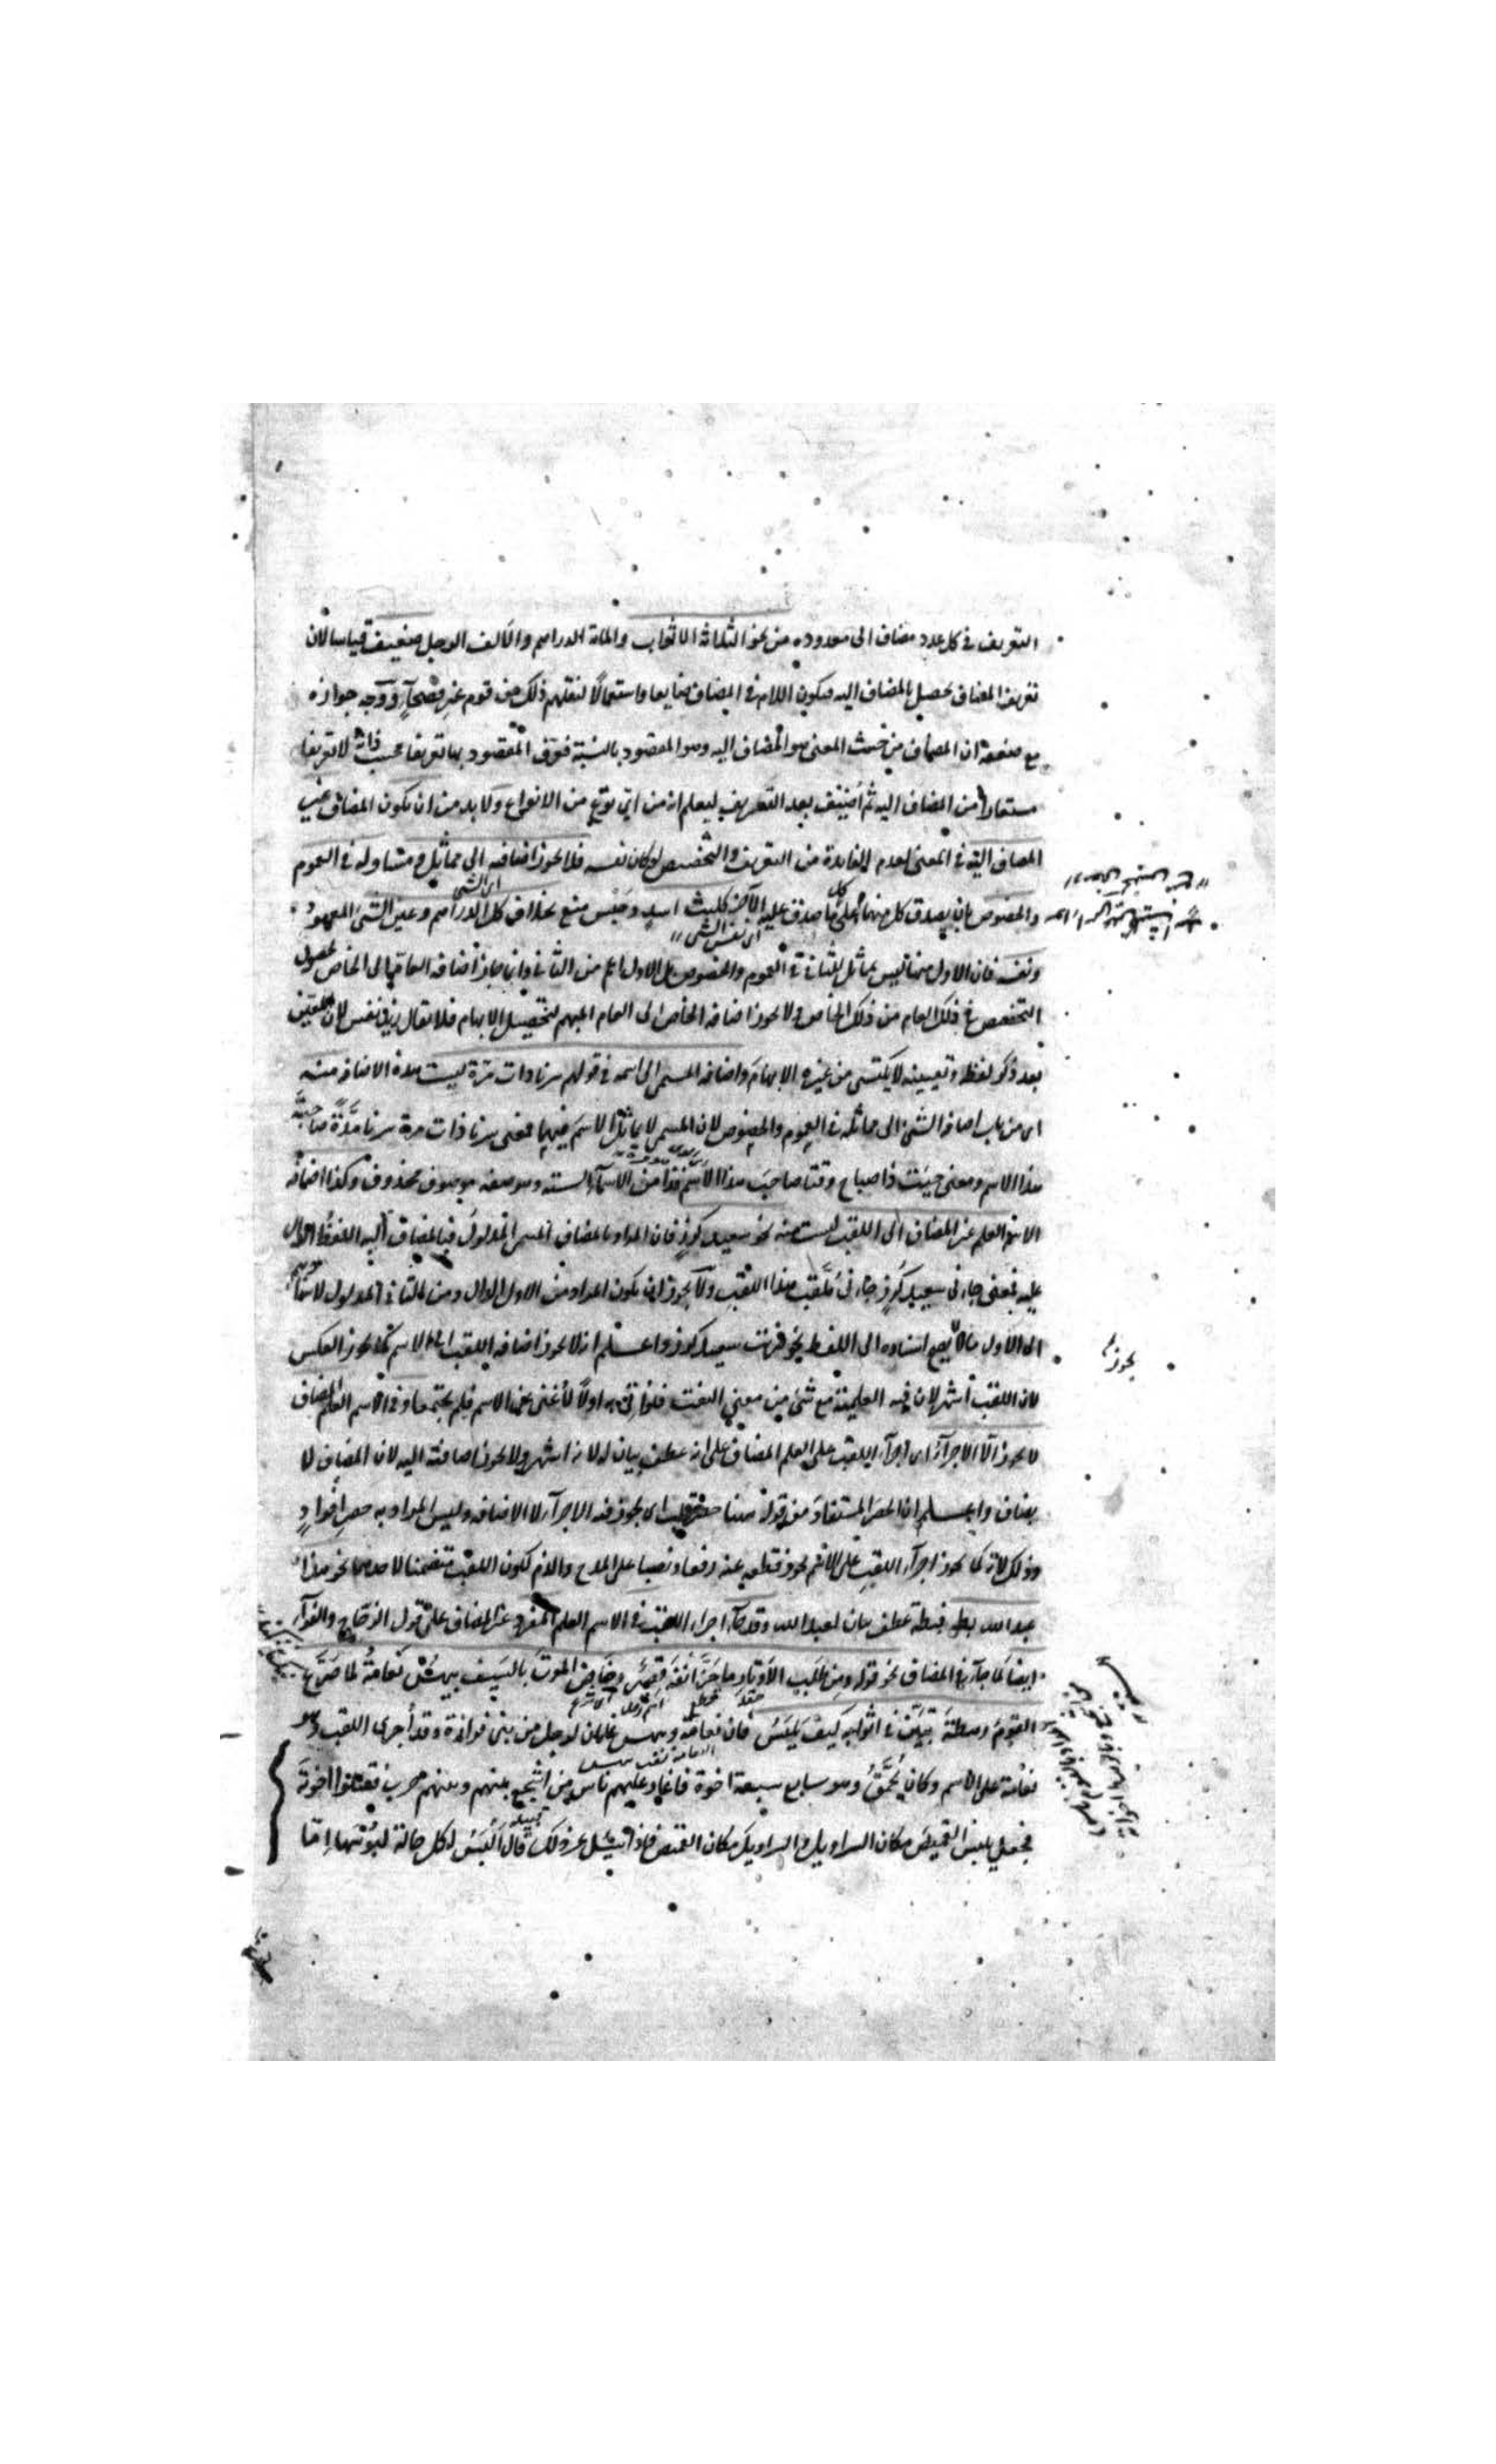 التعريف في كل عدد مضاف الى معدوده من نحو الثلثة الاثواب والماة الدراهم والالف الرجل ضعيف قياسا لان
تعريف المضاف يحصل بالمضاف اليه فيكون اللام في المضاف ضايعا واستعمالا لنقلهم ذلك من قوم غير فصحآء ووجه جوازه
مع ضعفه ان المضاف من حيث المعنى هو المضاف اليه وهو المقصود بالنسبة فعرف المقصود بها تعريفا بحسب ذاته لا تعريفا
مستعارا من المضاف اليه ثم اضيف بعد التعريف ليعلم انه من اي نوع من الانواع ولا بد من ان يكون المضاف غير
المضاف اليه في المعنى لعدم الفايدة من التعريف والتخصيص لو كان نفسه فلا يجوز اضافته الى مماثل ومشاوله في العموم
والخصوص بان يصدق كل منهما على كل ما صدق عليه الآخر كليث اسد وحبس منع بخلاف كل الدراهم وعين الشئ
ونفسه فان الاول منها ليس بمماثل للثاني في العموم والخصوص بل الاول اعم من الثاني وانما جاز اضافة العام الى الخاص لحصول
التخصيص في ذلك العام من ذلك الخاص ولا يجوز اضافة الخاص الى العام المبهم لتحصيل الابهام فلا يقال زيد نفس لان المعين
بعد ذكر لفظه وتعيينه لا يكتسى من غيره الابهام واضافة المسمى الى اسمه في قولهم سرنا ذات مرة ليست هذه الاضافة منه
اى من باب اضافة الشئ الى مماثله في العموم والخصوص لان المسمى لا يماثل الاسم فيهما فمعنى سرنا ذات مرة سرنا مدة صاحبة
هذا الاسم ومعنى جيئت ذا صباح وقتا صاحب هذا الاسم فذا من الاسمآء الستة وهو صفة موصوف محذوف وكذا اضافة
الاسم العلم غير المضاف الى اللقب ليست منه نحو سعيد كرز فان المراد بالمضاف المسمى المدلول وبالمضاف اليه اللفظ الدال
عليه فمعنى جاءنى سعيد كرز جاءنى ملقب هذا اللقب ولا يجوز ان يكون المراد من الاول الدال ومن الثاني المدلول لاسناد
الى الاول ما لا يصح اسناده الى اللفظ نحو ضربت سعيد كرز واعلم انه لا يجوز اضافة اللقب الى الاسم كما يجوز العكس
لان اللقب اشهر لان فيه العلمية مع شئ من معنى النعت فلو اتى به اولا لاغنى عن الاسم فلم يجتمعا وفي الاسم العلم المضاف
لا يجوز الا الاجرآء اى اجرآء اللقب على العلم المضاف على انه عطف بيان له لانه اشهر ولا يجوز اضافته اليه لان المضاف لا
يضاف واعلم ان الحصر المستفاد من قوله هنا اى يجوز فيه الاجرآء لا الاضافة وليس المراد به حصر افراد
وذلك لانه كما يجوز اجرآء اللقب على الاسم يجوز قطعه عنه رفعا ونصبا على المدح والذم لكون اللقب متضمنا لاحدهما نحو هذا
عبد الله بطة فبطة عطف بيان لعبد الله وقد جآء اجراء اللقب في الاسم العلم المفرد غير المضاف على قول الزجاج والفرآء
ايضا كما جآء في المضاف نحو قوله ومن طلب الاوتار ما حز انفه قصير وخاض الموت بالسيف بيهس نعامة لما صرع
القوم رهطه تبين في اثوابه كيف يلبس فان نعامة وبيهس علمان لرجل من بني فزارة وقد اجرى اللقب وهو
نعامة على الاسم وكان يحمق وهو سابع سبعة اخوة فاغار عليهم ناس من اشجع بينهم وبينهم حرب فقتلوا اخوته
فجعل يلبس القميص مكان السراويل والسراويل مكان القميص فاذا سئل عن ذلك قال البس لكل حالة لبوسها اما
يجوز